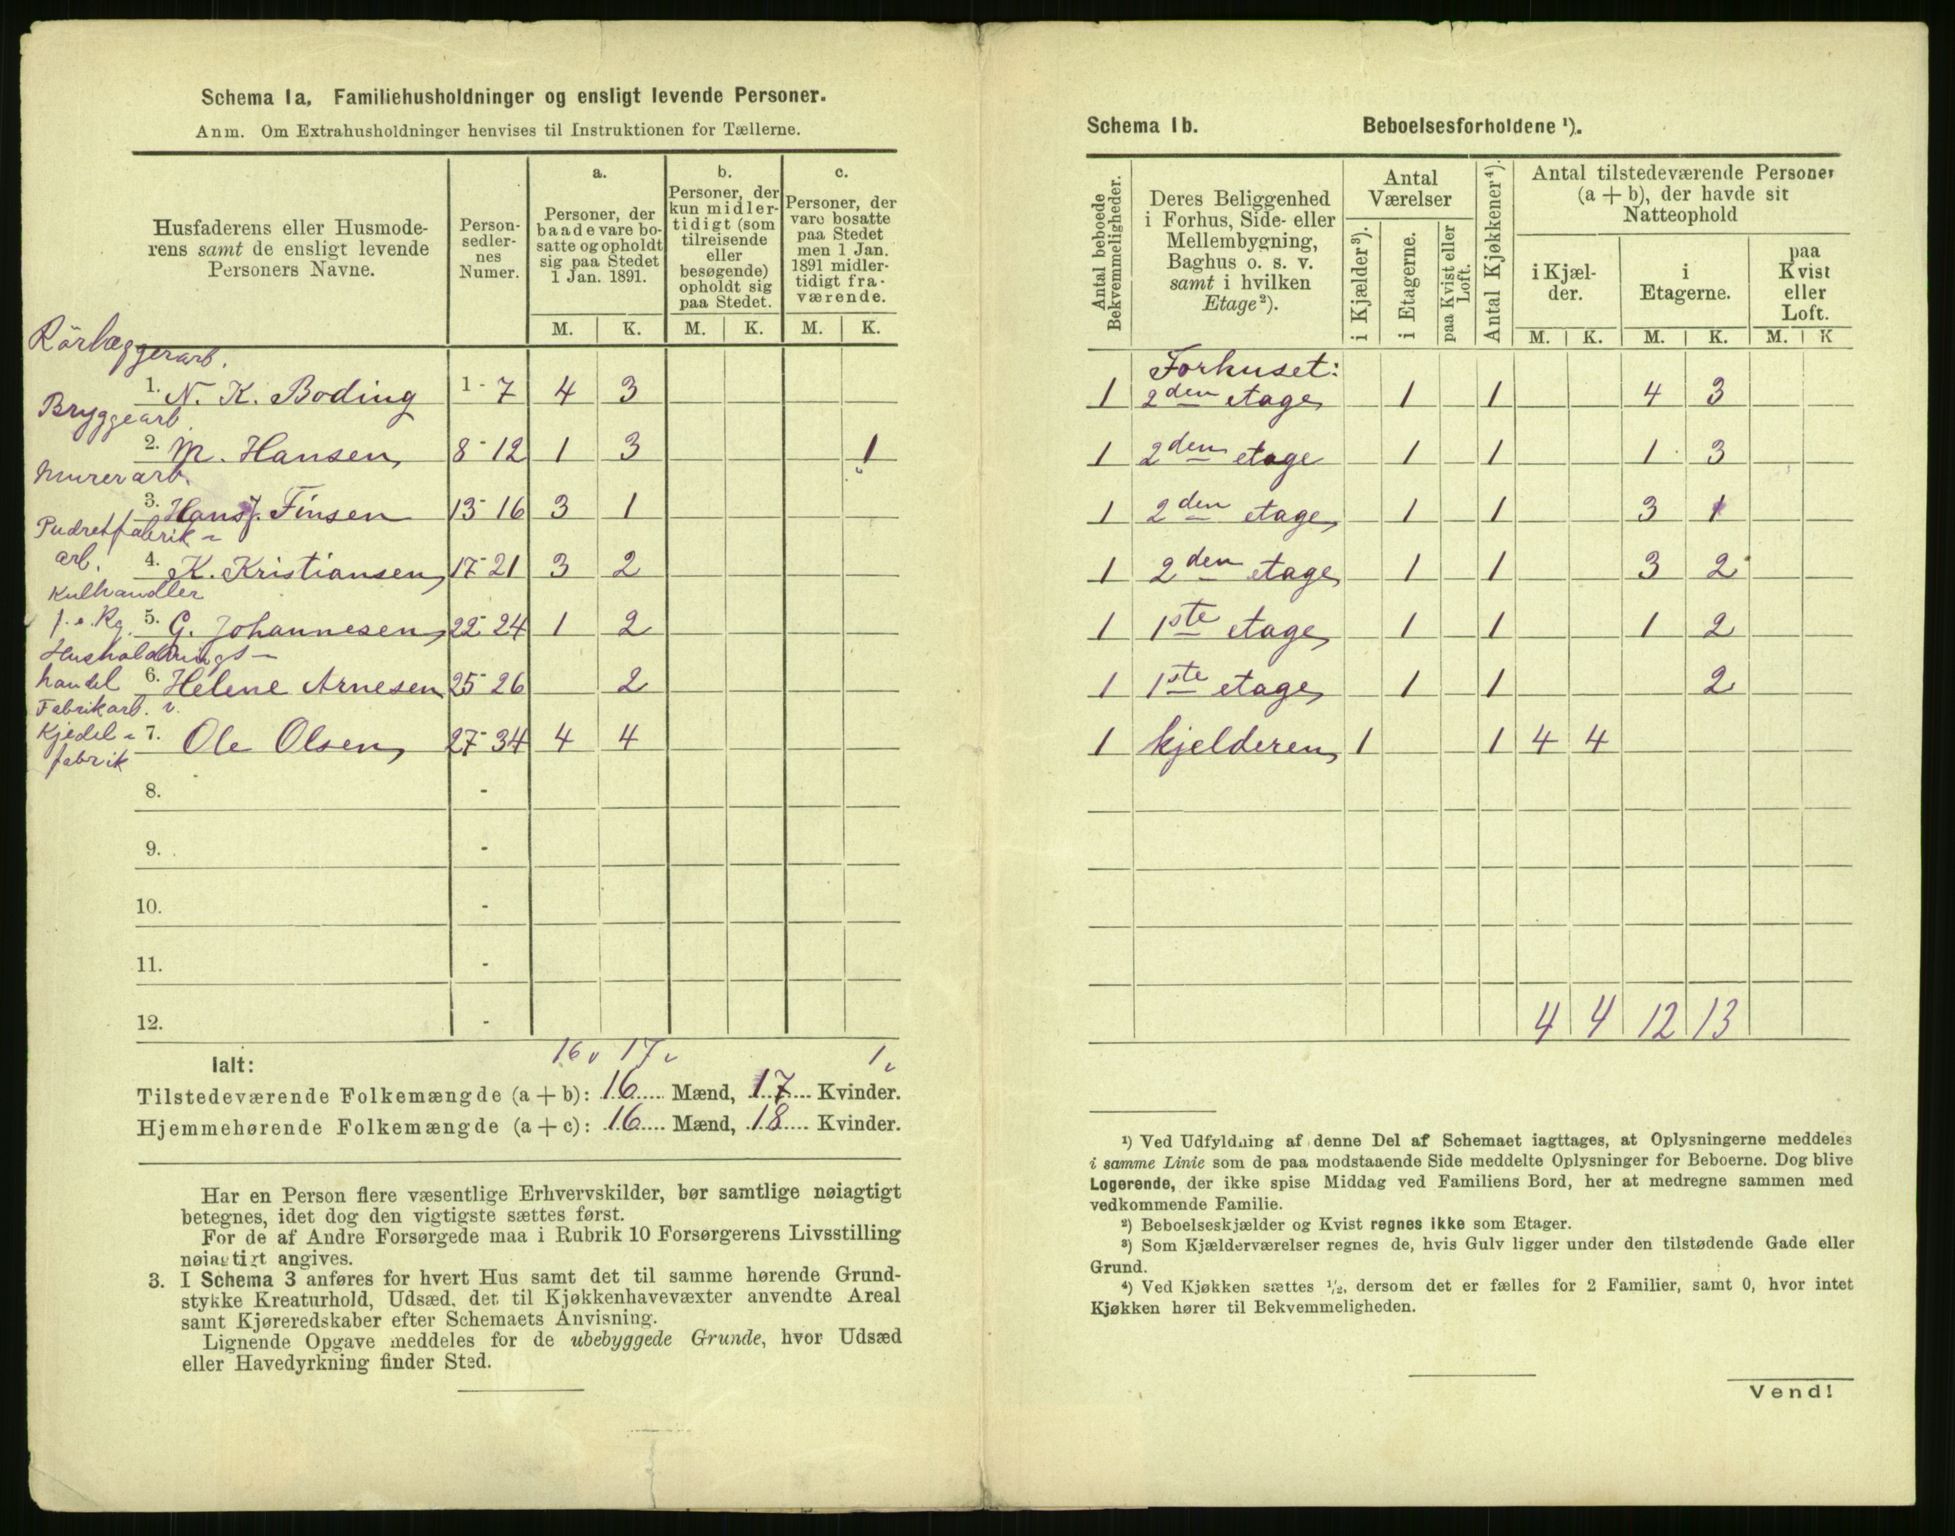 Schema 1a. Familiehusholdninger og ensligt levende Personer.
Anm. Om Extrahusholdninger henvises til Instruktionen for Tællerne.
Husfaderens eller Husmoderens samt de ensligt levende Personers Navne.
Personsedlernes Numer.
a. Personer, der baade vare bosatte og opholdt sig paa Stedet 1 Jan. 1891.
b. Personer, der kun midlertidigt (som tilreisende eller besøgende) opholdt sig paa Stedet.
c. Personer, der vare bosatte paa Stedet men 1 Jan. 1891 midlertidigt fraværende.
M. K. M. K. M. K.
Rörlæggerarb.
1. N. K. Boding 1-7 4 3
Bryggearb.
2. M. Hansen 8-12 1 3 1
Murerarb.
3. Hans J. Finsen 13-16 3 1
Pudretfabrik-
arb. 4. K. Kristiansen 17-21 3 2
Kulhandler
f. e. Rg. 5. G. Johannesen 22-24 1 2
Husholdnings-
handel 6. Helene Arnesen 25-26 2
Fabrikarb. v.
Kjedel- 7. Ole Olsen 27-34 4 4
fabrik
8. -
9. -
10. -
11. -
12. -
Ialt: 16 17 1
Tilstedeværende Folkemængde (a + b): 16 Mænd, 17 Kvinder.
Hjemmehørende Folkemængde (a + c): 16 Mænd, 18 Kvinder.
Har en Person flere væsentlige Erhvervskilder, bør samtlige nøiagtigt
betegnes, idet dog den vigtigste sættes først.
For de af Andre Forsørgede maa i Rubrik 10 Forsørgerens Livsstilling
nøiagtigt angives.
3. I Schema 3 anføres for hvert Hus samt det til samme hørende Grund-
stykke Kreaturhold, Udsæd, det til Kjøkkenhavevæxter anvendte Areal
samt Kjøreredskaber efter Schemaets Anvisning.
Lignende Opgave meddeles for de ubebyggede Grunde, hvor Udsæd
eller Havedyrkning finder Sted.
Schema 1b. Beboelsesforholdene ¹).
Antal beboede Bekvemmeligheder.
Deres Beliggenhed i Forhus, Side- eller Mellembygning, Baghus o. s. v. samt i hvilken Etage²).
Antal Værelser
i Kjælder³).
i Etagerne.
paa Kvist eller Loft.
Antal Kjøkkener⁴).
Antal tilstedeværende Personer (a + b), der havde sit Natteophold
i Kjælder.
i Etagerne.
paa Kvist eller Loft.
M. K. M. K. M. K
Forhuset:
1 2den etage 1 1 4 3
1 2den etage 1 1 1 3
1 2den etage 1 1 3 1
1 2den etage 1 1 3 2
1 1ste etage 1 1 1 2
1 1ste etage 1 1 2
1 kjelderen 1 1 4 4
4 4 12 13
¹) Ved Udfyldning af denne Del af Schemaet iagttages, at Oplysningerne meddeles
i samme Linie som de paa modstaaende Side meddelte Oplysninger for Beboerne. Dog blive
Logerende, der ikke spise Middag ved Familiens Bord, her at medregne sammen med
vedkommende Familie.
²) Beboelseskjælder og Kvist regnes ikke som Etager.
³) Som Kjælderværelser regnes de, hvis Gulv ligger under den tilstødende Gade eller
Grund.
⁴) Ved Kjøkken sættes ½, dersom det er fælles for 2 Familier, samt 0, hvor intet
Kjøkken hører til Bekvemmeligheden.
Vend!